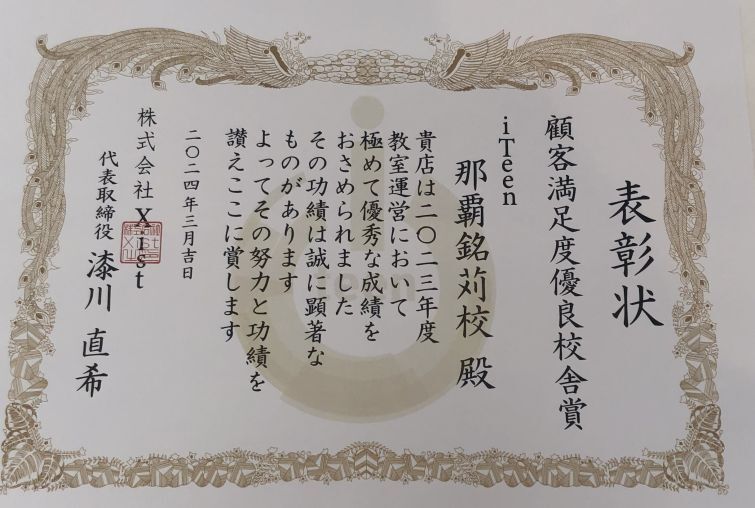 表彰状
顧客満足度優良校舎賞
iTeen
那覇銘苅校 殿
貴店は二〇二三年度
教室運営において
極めて優秀な成績を
おさめられました
その功績は誠に顕著な
ものがあります
よってその努力と功績を
讃えここに賞します
二〇二四年三月吉日
株式会社Xist
代表取締役 漆川 直希